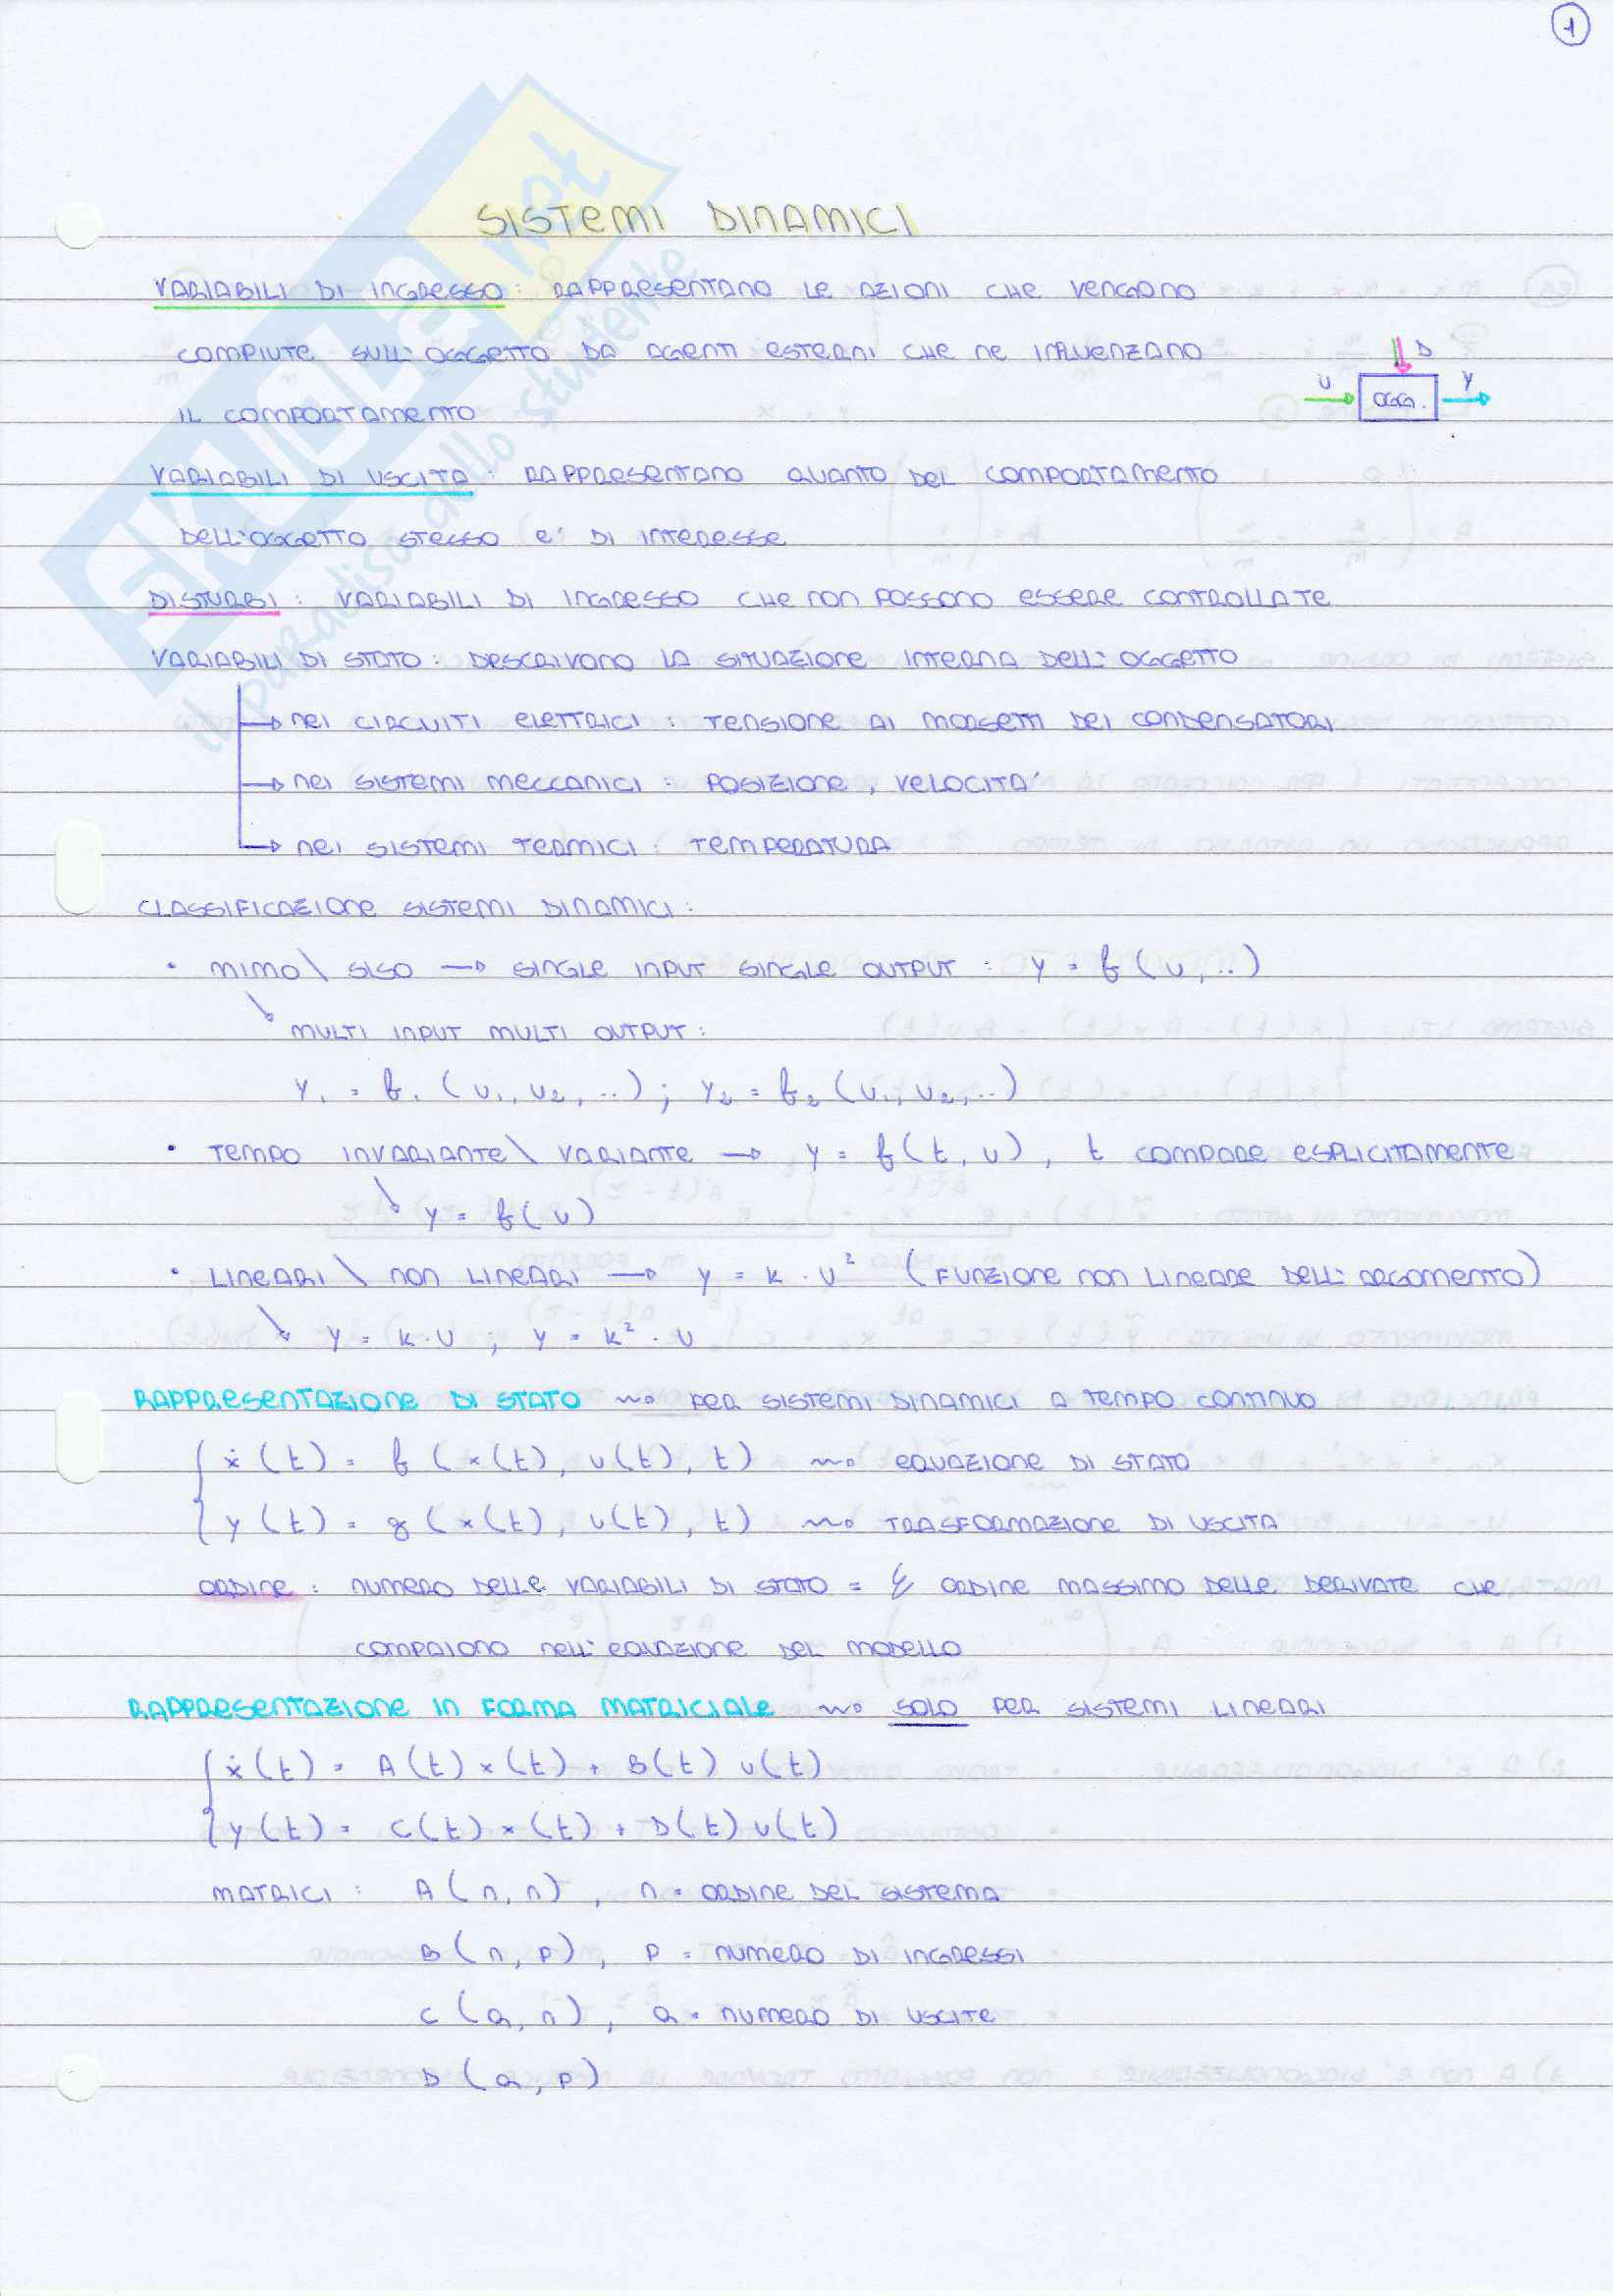 1
SISTEMI DINAMICI
VARIABILI DI INGRESSO : RAPPRESENTANO LE AZIONI CHE VENGONO
COMPIUTE SULL'OGGETTO DA AGENTI ESTERNI CHE NE INFLUENZANO
IL COMPORTAMENTO
U OGG. Y D
VARIABILI DI USCITA : RAPPRESENTANO QUANTO DEL COMPORTAMENTO
DELL'OGGETTO STESSO E' DI INTERESSE
DISTURBI : VARIABILI DI INGRESSO CHE NON POSSONO ESSERE CONTROLLATE
VARIABILI DI STATO : DESCRIVONO LA SITUAZIONE INTERNA DELL'OGGETTO
→ NEI CIRCUITI ELETTRICI : TENSIONE AI MORSETTI DEI CONDENSATORI
→ NEI SISTEMI MECCANICI : POSIZIONE , VELOCITA'
→ NEI SISTEMI TERMICI : TEMPERATURA
CLASSIFICAZIONE SISTEMI DINAMICI :
• MIMO \ SISO → SINGLE INPUT SINGLE OUTPUT : y = f ( u , .. )
MULTI INPUT MULTI OUTPUT :
y₁ = f₁ ( u₁, u₂, .. ) ; y₂ = f₂ ( u₁, u₂, .. )
• TEMPO INVARIANTE \ VARIANTE → y = f ( t , u ) , t COMPARE ESPLICITAMENTE
y = f ( u )
• LINEARI \ NON LINEARI → y = k · u² ( FUNZIONE NON LINEARE DELL'ARGOMENTO )
y = k · u ; y = k² · u
RAPPRESENTAZIONE DI STATO ⇝ PER SISTEMI DINAMICI A TEMPO CONTINUO
{ ẋ (t) = f ( x(t) , u(t) , t ) ⇝ EQUAZIONE DI STATO
{ y (t) = g ( x(t) , u(t) , t ) ⇝ TRASFORMAZIONE DI USCITA
ORDINE : NUMERO DELLE VARIABILI DI STATO = Σ ORDINE MASSIMO DELLE DERIVATE CHE
COMPAIONO NELL'EQUAZIONE DEL MODELLO
RAPPRESENTAZIONE IN FORMA MATRICIALE ⇝ SOLO PER SISTEMI LINEARI
{ ẋ (t) = A (t) x (t) + B (t) u (t)
{ y (t) = C (t) x (t) + D (t) u (t)
MATRICI : A ( n, n ) , n = ORDINE DEL SISTEMA
B ( n, p ) , p = NUMERO DI INGRESSI
C ( q, n ) , q = NUMERO DI USCITE
D ( q, p )
SKUOLA.net
il paradiso dello studente